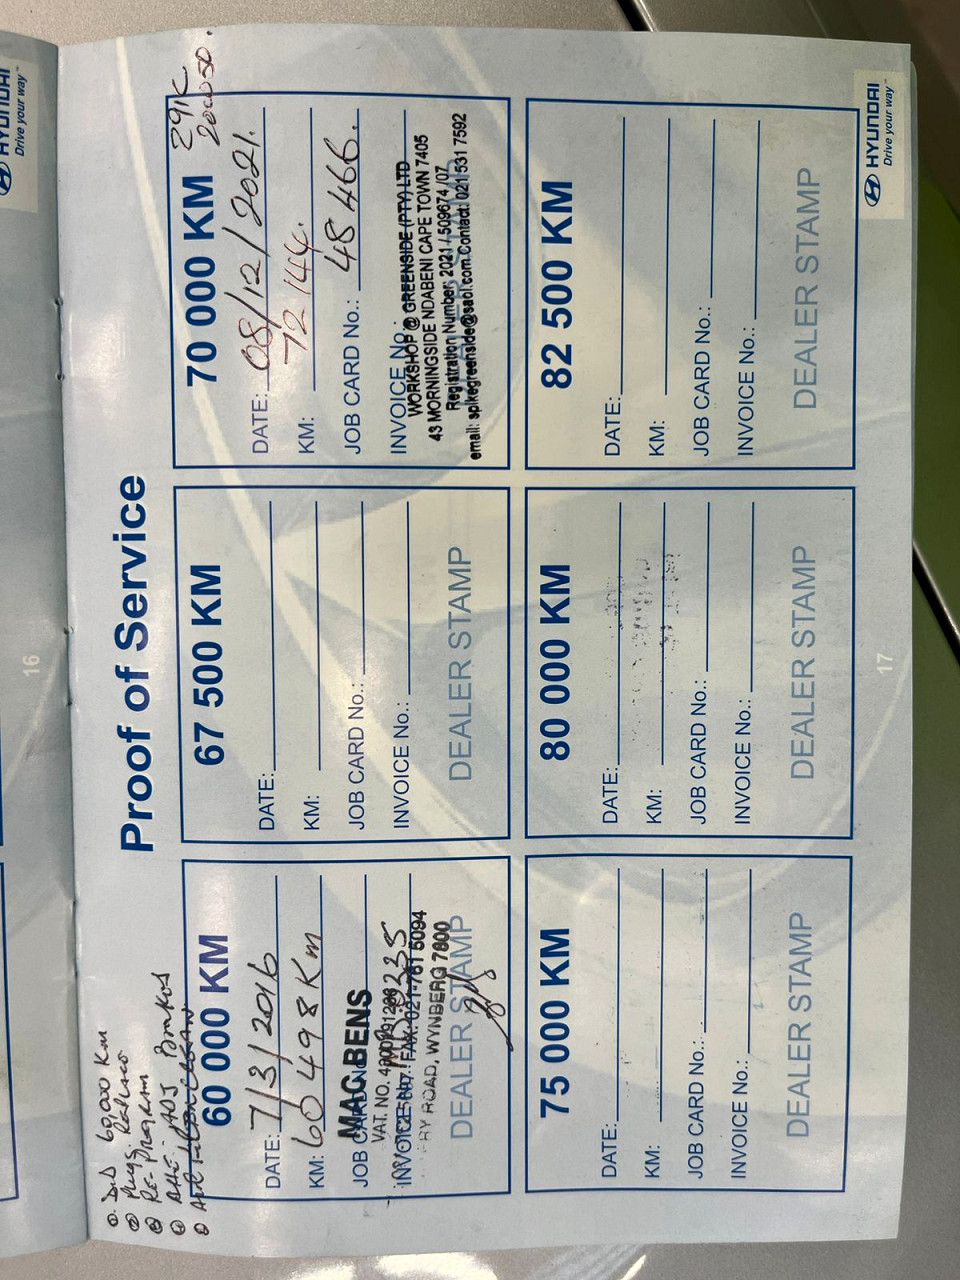 HYUNDAI
Drive your way
16
Proof of Service
60 000 KM
DATE: 7/3/2016
KM: 60 498 Km
JOB CARD No.:
MAC BENS
VAT. NO.
INVOICE No.:
FAX: 021-761 5094
ROAD, WYNBERG 7800
DEALER STAMP
60,000 Km
67 500 KM
DATE:
KM:
JOB CARD No.:
INVOICE No.:
DEALER STAMP
70 000 KM
291K
20W50.
DATE: 08/12/2021.
KM: 72 144.
JOB CARD No.: 48 466.
INVOICE No.:
WORKSHOP @ GREENSIDE (PTY) LTD
43 MORNINGSIDE NDABENI CAPE TOWN 7405
Registration Number: 2021 / 509674 /07
email: spikegreenside@saol.com Contact: 021 531 7592
75 000 KM
DATE:
KM:
JOB CARD No.:
INVOICE No.:
DEALER STAMP
80 000 KM
DATE:
KM:
JOB CARD No.:
INVOICE No.:
DEALER STAMP
82 500 KM
DATE:
KM:
JOB CARD No.:
INVOICE No.:
DEALER STAMP
17
HYUNDAI
Drive your way